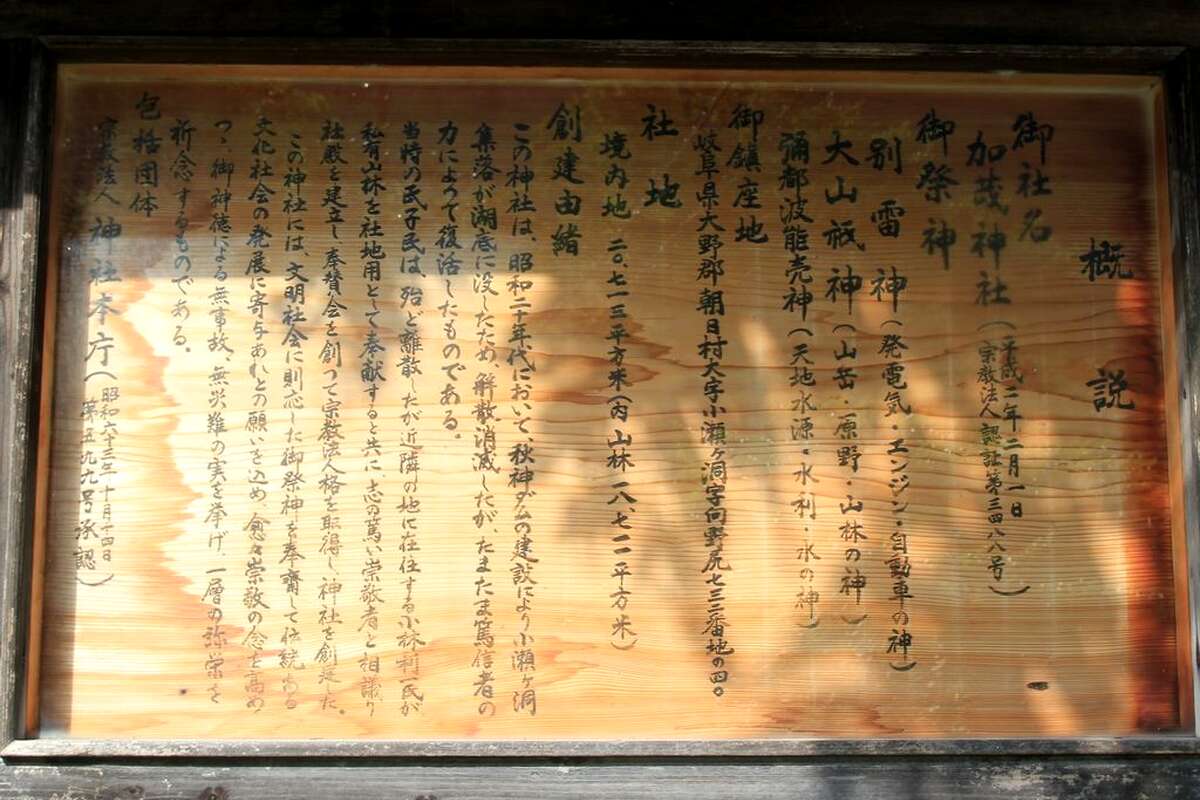 概説
御社名
加茂神社（平成二年二月一日
宗教法人認証第三四八八号）
御祭神
別雷神（発電気・エンジン・自動車の神）
大山祇神（山岳・原野・山林の神）
彌都波能売神（天地水源・水利・水の神）
御鎮座地
岐阜県大野郡朝日村大字小瀬ヶ洞字向野尻七三二番地の四〇
社地
境内地 二〇、七一三平方米（内山林一八、七二一平方米）
創建由緒
この神社は、昭和二十年代において、秋神ダムの建設により小瀬ヶ洞
集落が湖底に没したため、解散消滅したが、たまたま篤信者の
力によって復活したものである。
当時の氏子民は、殆ど離散したが近隣の地に在住する小林利一氏が
私有山林を社地用として奉献すると共に、志の篤い崇敬者と相議り
社殿を建立し、奉賛会を創つて宗教法人格を取得し神社を創建した。
この神社には、文明社会に則応した御祭神を奉齋して伝統ある
文化社会の発展に寄与あれとの願いを込め、愈々崇敬の念を高め
つゝ御神徳による無事故、無災難の実を挙げ、一層の弥栄を
祈念するものである。
包括団体
宗教法人 神社本庁（昭和六十三年十月十四日
第五九九号承認）